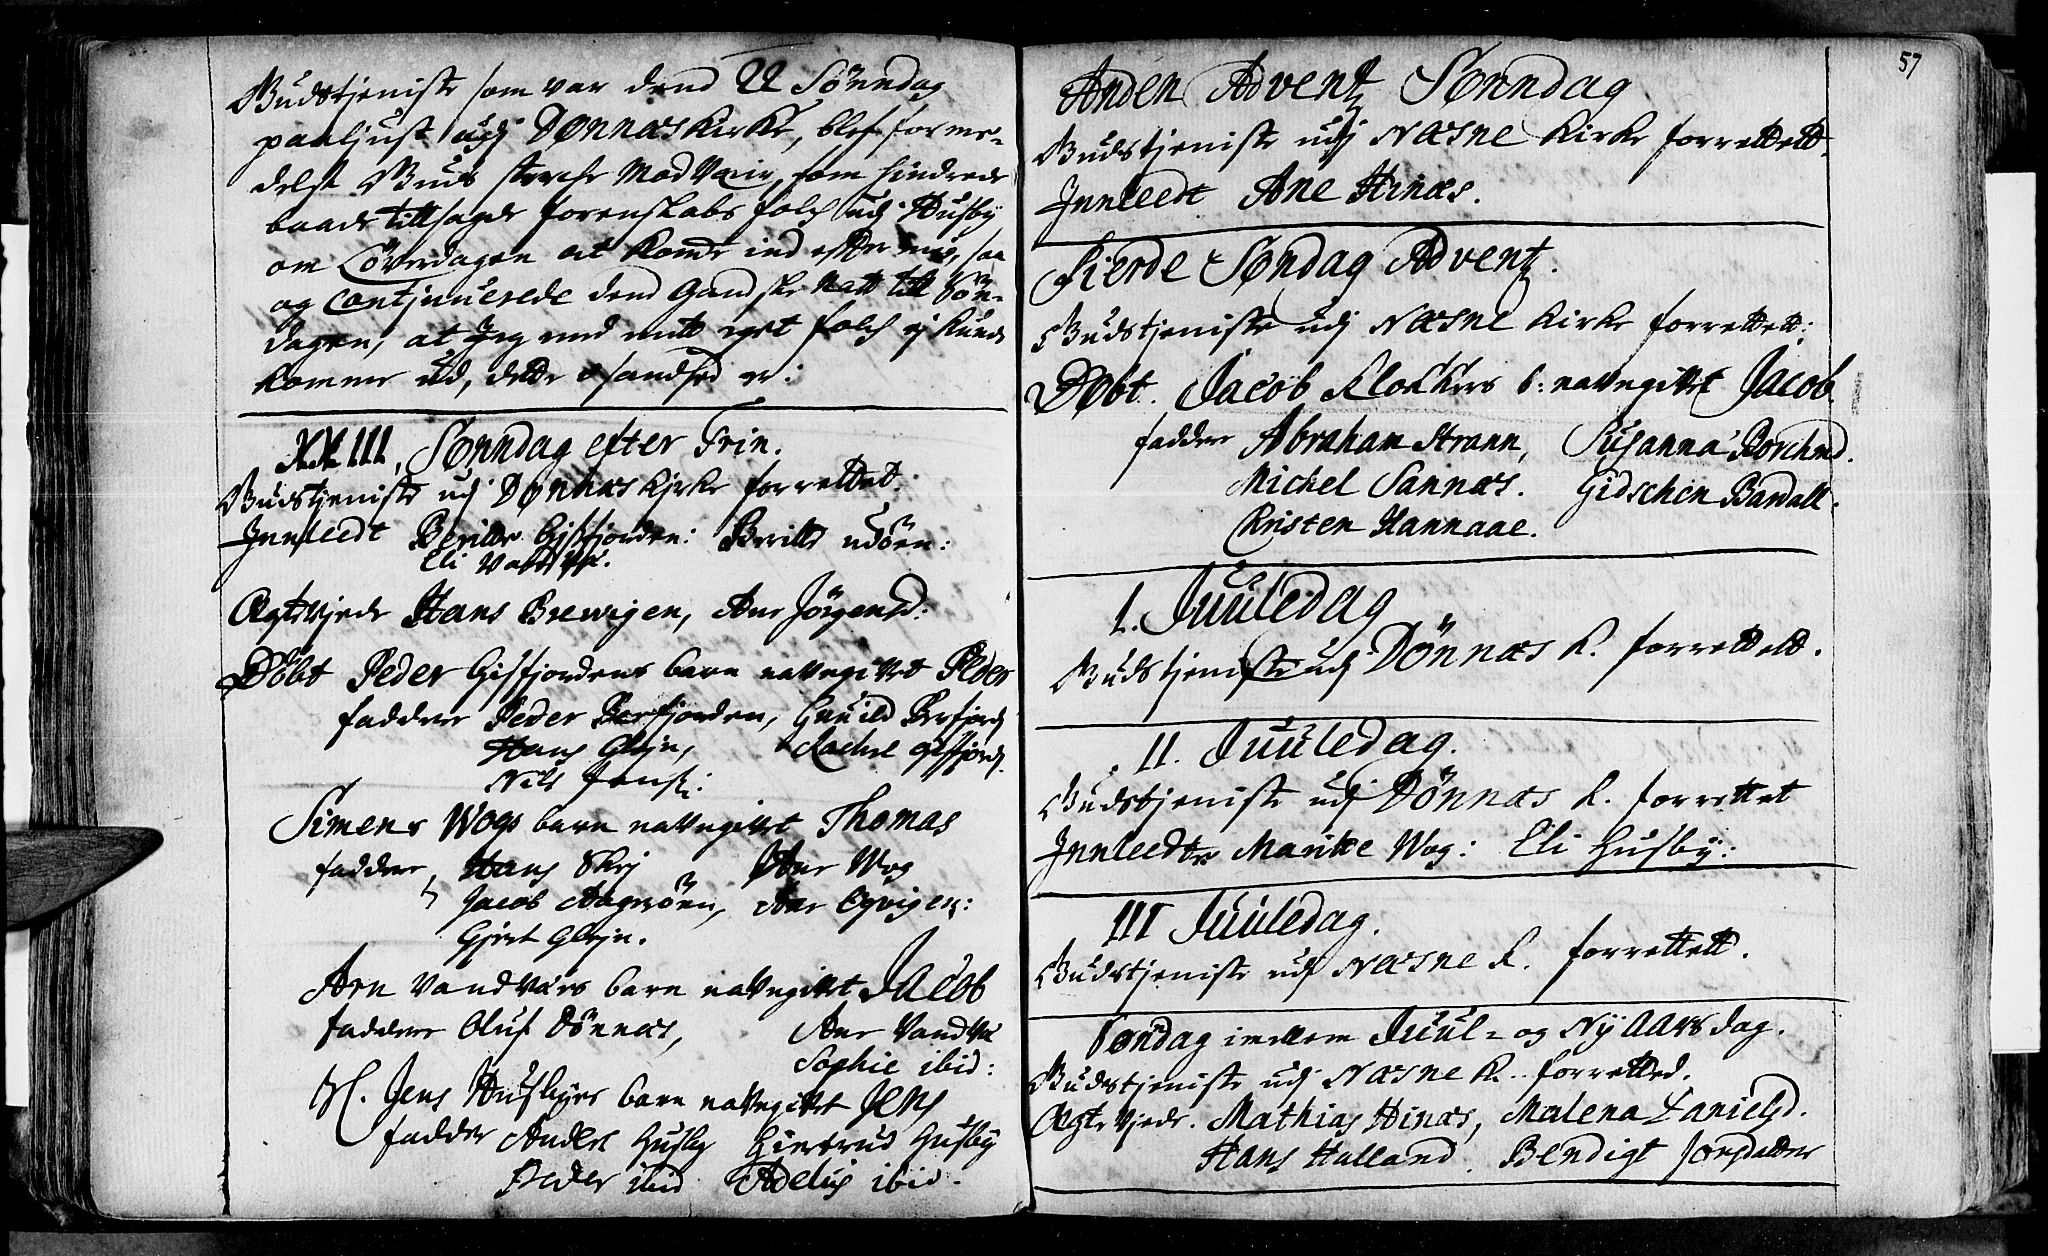 Gudstjeniste som var dend 22 Sönndag
paaljust udj Dönnæs Kirke, blef forme-
delst Guds sterche Modvær, som hindrede
baade tillsagde forenskabs folch udj Husby
om Löverdagen at komme ind efter mig, saa
og Contjnuerede dend gandske Natt till Sön-
dagen, at Jeg med mitt eget folch ej kunde
komme ud, dette sandhed er:
XXIII, Sönndag efter Trin.
Gudstjeniste udj Dönnæs Kjrke forrettet.
Innleedt Beritte Gisfjorden: Beritte udöen:
Eli
Ægtevjede Hans Brewigen, Ane Jörgensd:
Döbt Peder Gisfjordens barn nafngivet Peder
faddere Peder Berfjorden, Gunild Berfjord
Hans Glejn, Rachel Gisfjord.
Nils Jens:
Simens Wogs barn nafngivet Thomas
faddere, Hans Skej Ane Wog
Jacob Aageröen, Ane Eqvigen:
Gjert Glejn.
Arn Vandvæes barn nafngivet Jacob
faddere Oluf Dönnæs, Ane Vandve
Sophie ibid:
H. Jens Husbyes barn nafngivet Jens
fadder Anders Husby Giertrud Husby
Peder ibid Adelus ibid.
57
Anden Advent Sönndag
Gudstjeniste udj Næsne Kirke forrettett.
Innleedt Ane Hinæs.
Fierde Söndag Advent.
Gudstjeniste udj Næsne Kirke forrettett:
Döbt. Jacob Klokkers b: nafngivet Jacob.
faddere Abraham Strann, Susanna Borchmd.
Michel Sannæs. Gidschen Bardall.
Kristen Hannaae.
I. Juuledag
Gudstjeniste udj Dönnæs K. forrettett.
II. Juuledag.
Gudstjeniste udj Dönnæs K. forrettet
Innleedte Maritte Wog: Eli Husby:
III Juuledag.
Gudstjeniste udj Næsne K. forrettett.
Söndag imellem Juul- og Nÿ Aars dag.
Gudstjeniste udj Næsne K. forretted.
Ægte Vjede. Mathias Hinæs, Malena Danielsd.
Hans Halland. Bendigt Jonsdatter